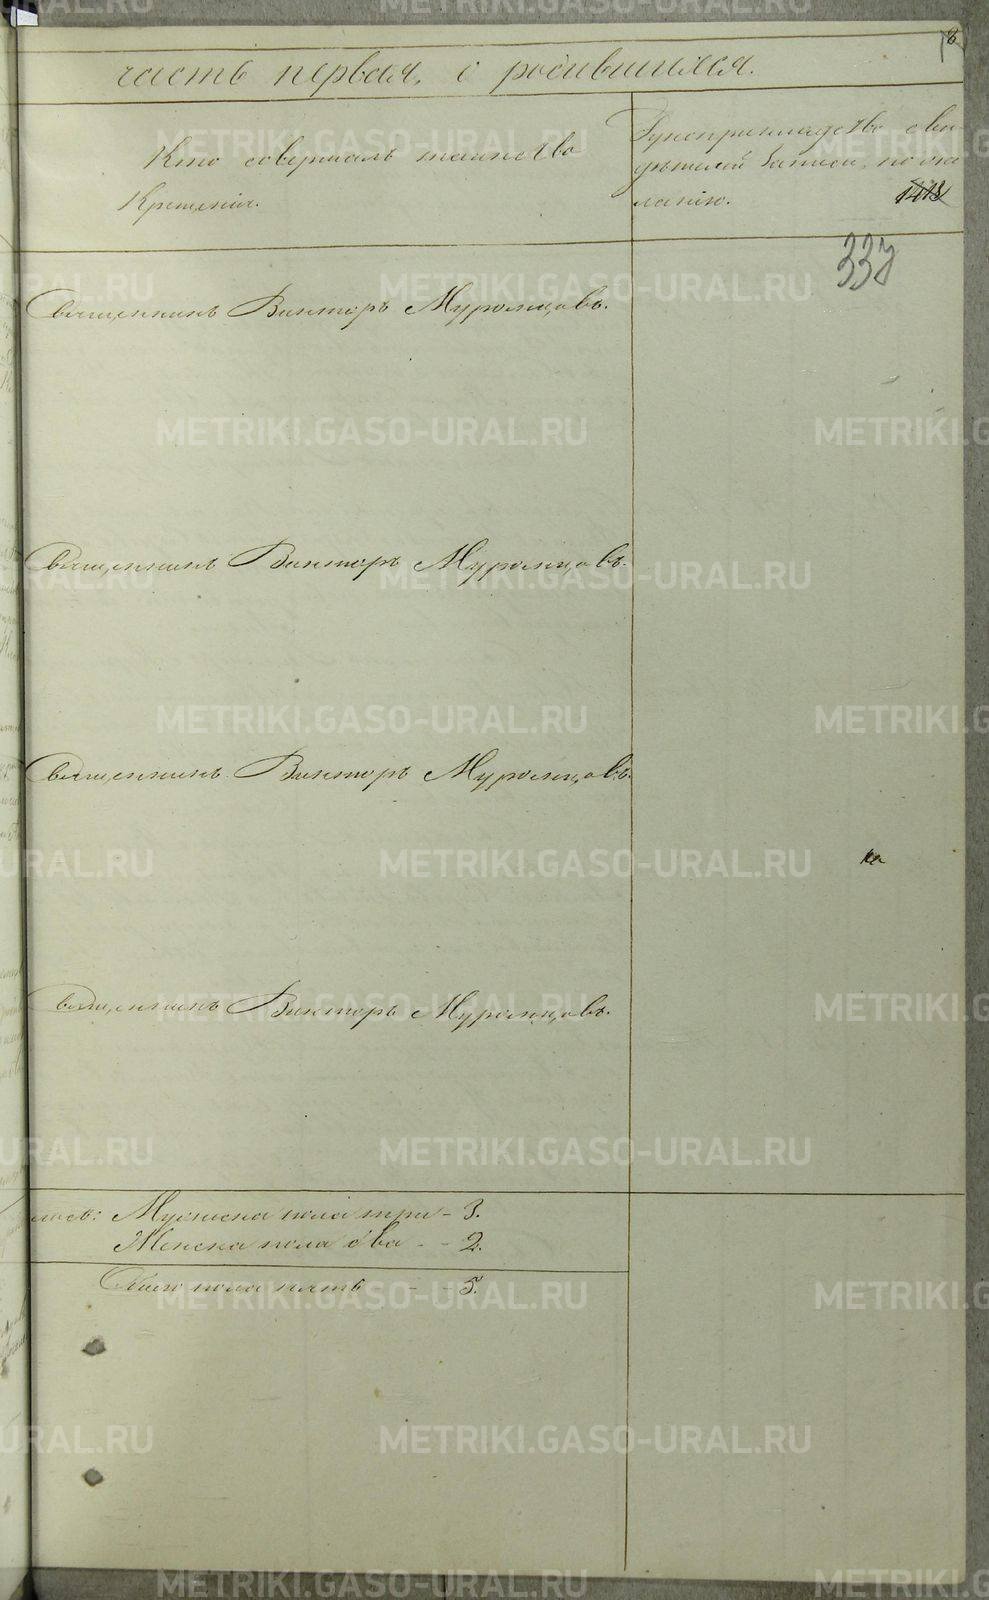 8
часть первая, о родившихся.
Кто совершалъ таинство
Крещенія.
Рукоприкладство сви-
дѣтелей записи по же-
ланію.
1413
337
Священникъ Викторъ Муромцовъ.
Священникъ Викторъ Муромцовъ.
Священникъ Викторъ Муромцовъ.
Священникъ Викторъ Муромцовъ.
Мужеска пола три - 3.
Женска пола два - - 2.
Обоего пола пять - - 5.
METRIKI.GASO-URAL.RU